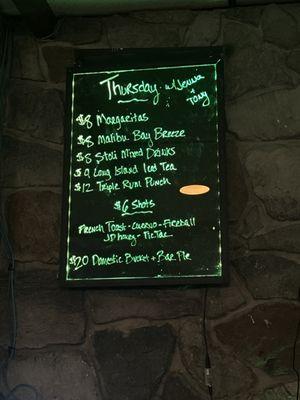 Thursday w/ Jenna
+ Tony
$8 Margaritas
$8 Malibu Bay Breeze
$8 Stoli Mixed Drinks
$9 Long Island Iced Tea
$12 Triple Rum Punch
$6 Shots
French Toast - Cuervo - Fireball
J.P. Honey - Pic Tac
$20 Domestic Bucket + Bar Pie